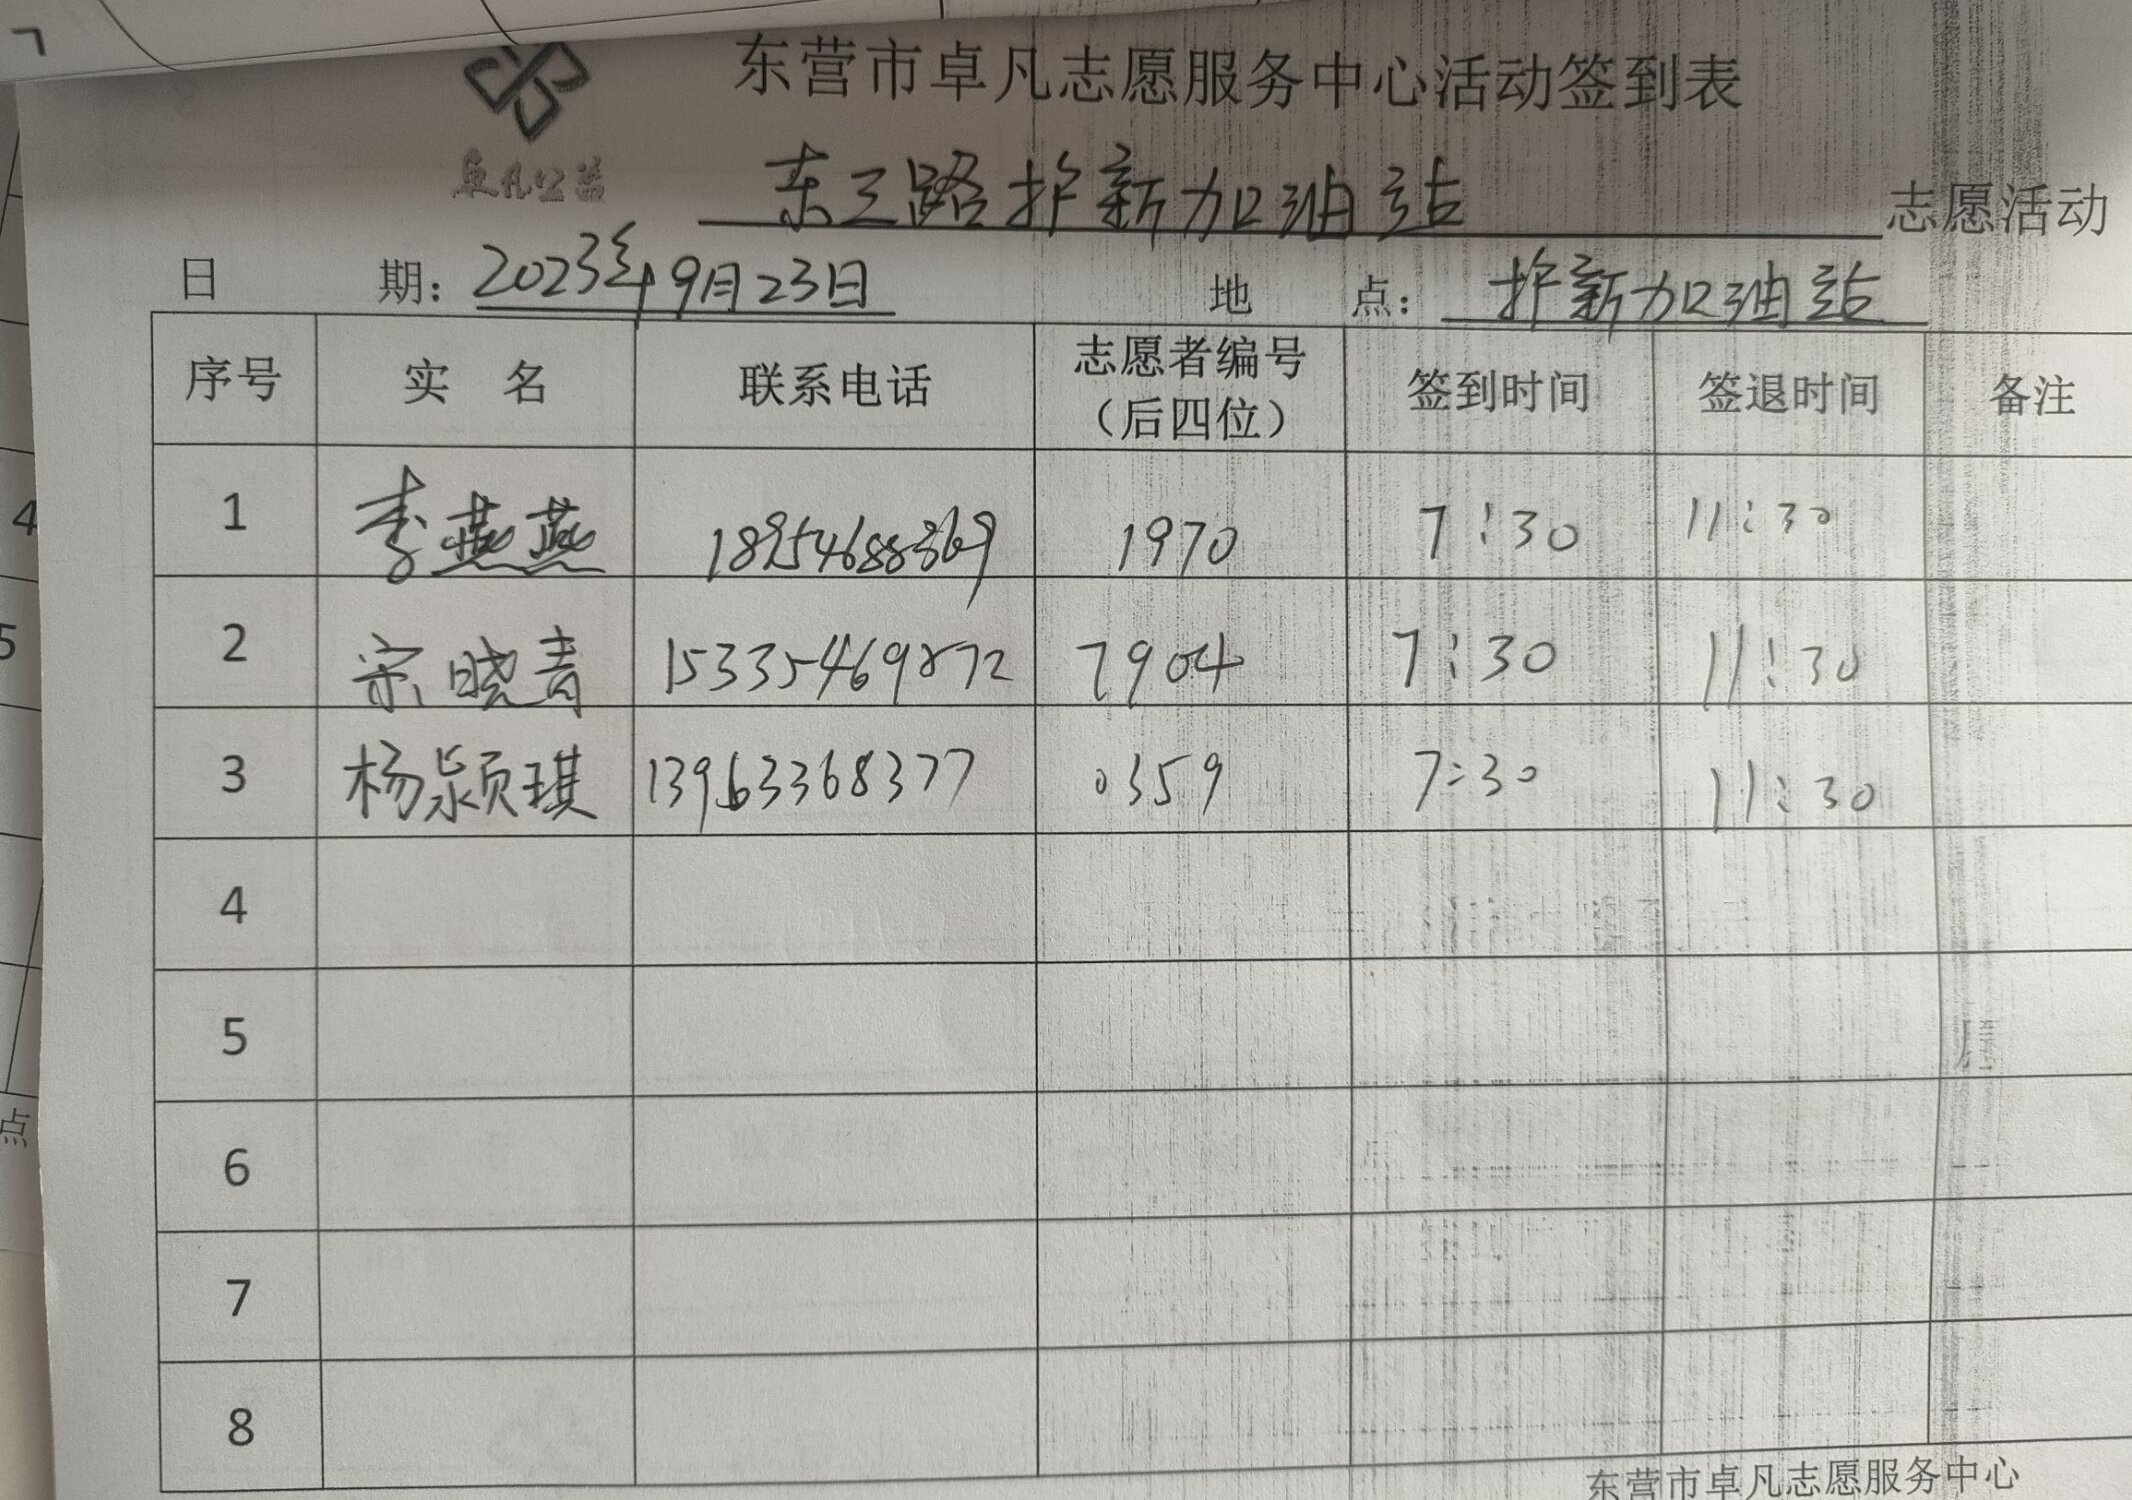 东营市卓凡志愿服务中心活动签到表
卓凡公益
东三路护新加油站 志愿活动
日 期：2023年9月23日 地 点：护新加油站
序号 实 名 联系电话 志愿者编号（后四位） 签到时间 签退时间 备注
1 李燕燕 18954688369 1970 7:30 11:30
2 宋晓青 15335469872 7904 7:30 11:30
3 杨颍琪 13963368377 0359 7:30 11:30
4
5
6
7
8
东营市卓凡志愿服务中心
4
5
点